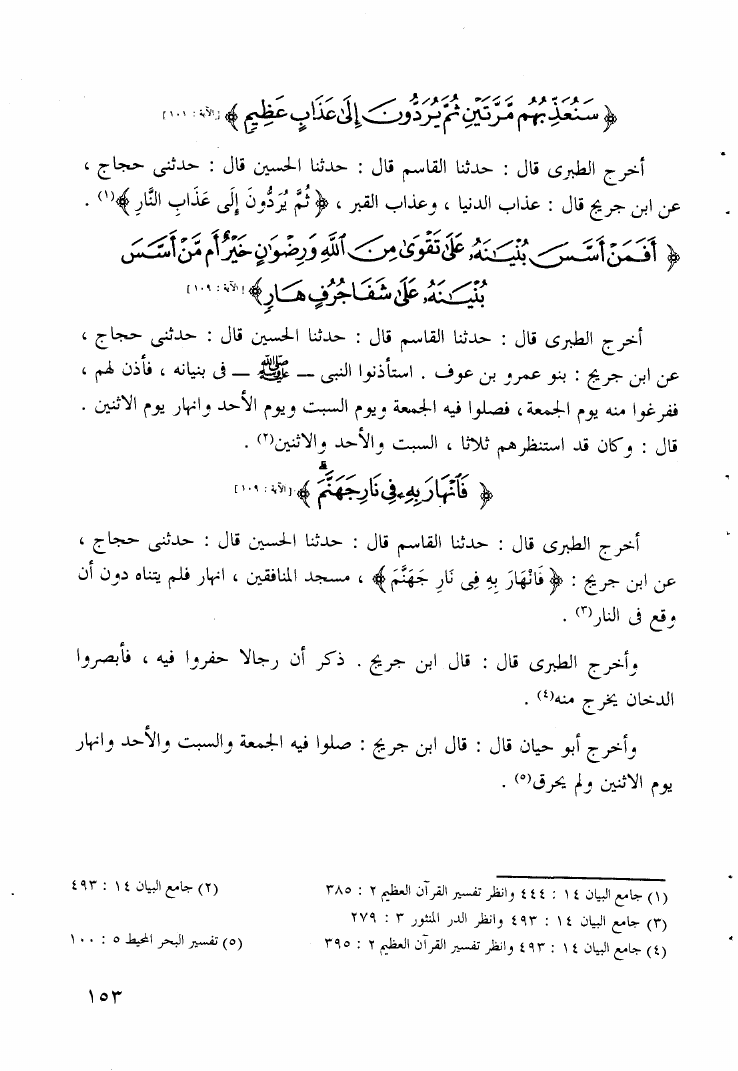 ﴿ سَنُعَذِّبُهُم مَّرَّتَيْنِ ثُمَّ يُرَدُّونَ إِلَىٰ عَذَابٍ عَظِيمٍ ﴾ [الآية : ١٠١]
أخرج الطبرى قال : حدثنا القاسم قال : حدثنا الحسين قال : حدثنى حجاج ،
عن ابن جريج قال : عذاب الدنيا ، وعذاب القبر ، ﴿ ثُمَّ يُرَدُّونَ إِلَى عَذَابِ النَّارِ ﴾(١) .
﴿ أَفَمَنْ أَسَّسَ بُنْيَـٰنَهُۥ عَلَىٰ تَقْوَىٰ مِنَ ٱللَّهِ وَرِضْوَٰنٍ خَيْرٌ أَم مَّنْ أَسَّسَ
بُنْيَـٰنَهُۥ عَلَىٰ شَفَا جُرُفٍ هَارٍ ﴾ [الآية : ١٠٩]
أخرج الطبرى قال : حدثنا القاسم قال : حدثنا الحسين قال : حدثنى حجاج ،
عن ابن جريج : بنو عمرو بن عوف . استأذنوا النبى — ﷺ — فى بنيانه ، فأذن لهم ،
ففرغوا منه يوم الجمعة ، فصلوا فيه الجمعة ويوم السبت ويوم الأحد وانهار يوم الاثنين .
قال : وكان قد استنظرهم ثلاثا ، السبت والأحد والاثنين(٢) .
﴿ فَٱنْهَارَ بِهِۦ فِى نَارِ جَهَنَّمَ ۗ ﴾ [الآية : ١٠٩]
أخرج الطبرى قال : حدثنا القاسم قال : حدثنا الحسين قال : حدثنى حجاج ،
عن ابن جريج : ﴿ فَانْهَارَ بِهِ فِى نَارِ جَهَنَّمَ ﴾ ، مسجد المنافقين ، انهار فلم يتناه دون أن
وقع فى النار(٣) .
وأخرج الطبرى قال : قال ابن جريج . ذكر أن رجالا حفروا فيه ، فأبصروا
الدخان يخرج منه(٤) .
وأخرج أبو حيان قال : قال ابن جريج : صلوا فيه الجمعة والسبت والأحد وانهار
يوم الاثنين ولم يحرق(٥) .
(١) جامع البيان ١٤ : ٤٤٤ وانظر تفسير القرآن العظيم ٢ : ٣٨٥
(٢) جامع البيان ١٤ : ٤٩٣
(٣) جامع البيان ١٤ : ٤٩٣ وانظر الدر المنثور ٣ : ٢٧٩
(٤) جامع البيان ١٤ : ٤٩٣ وانظر تفسير القرآن العظيم ٢ : ٣٩٥
(٥) تفسير البحر المحيط ٥ : ١٠٠
١٥٣